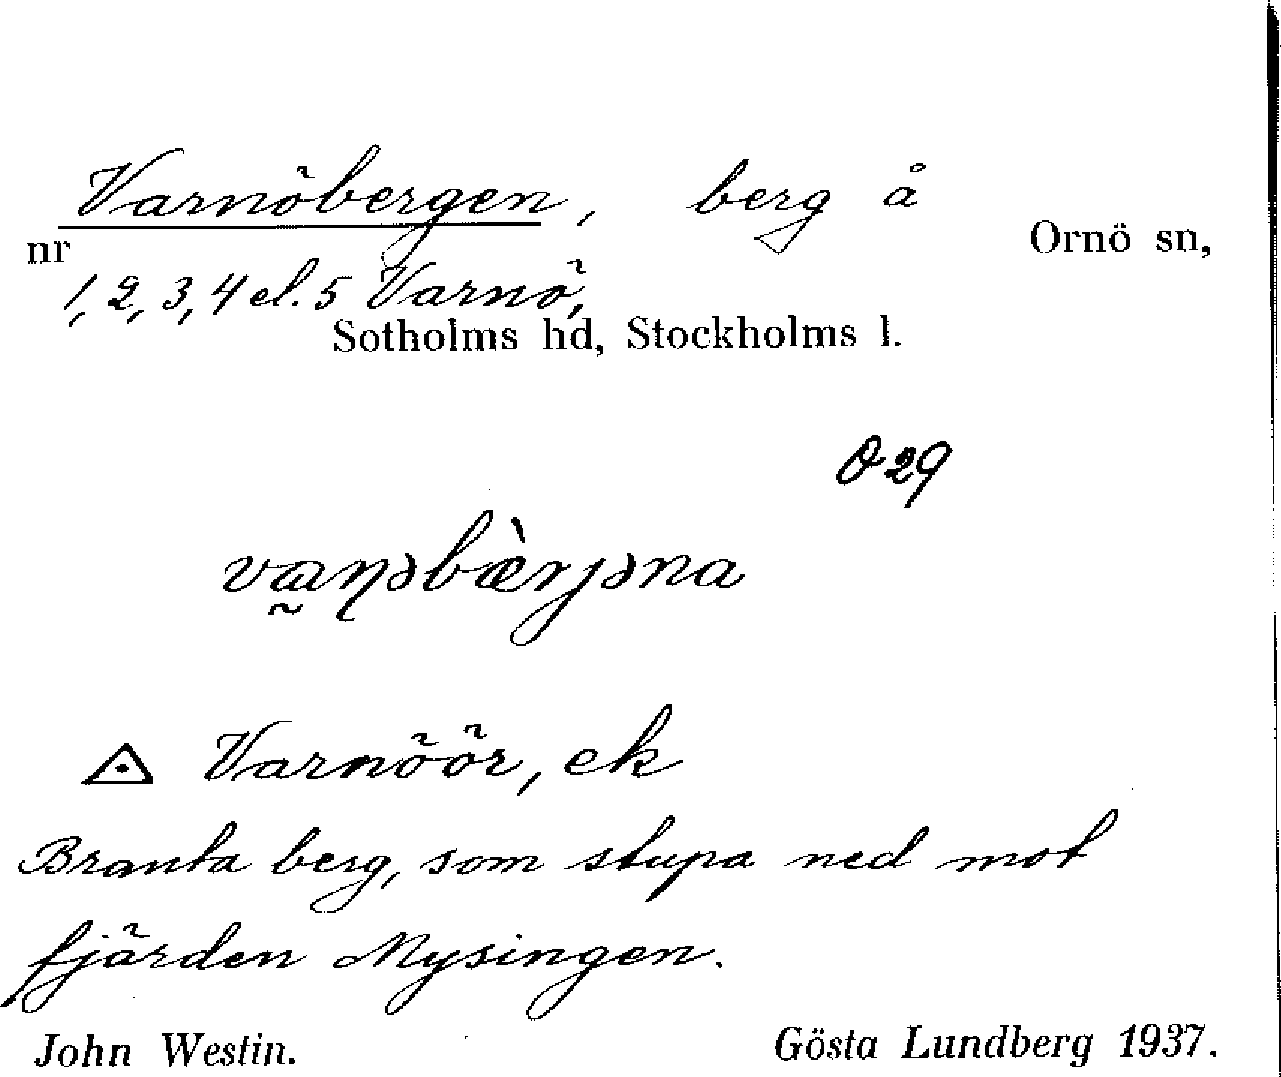 Varnöbergen, berg å
nr Ornö sn,
1, 2, 3, 4 el. 5 Varnö,
Sotholms hd, Stockholms l.
O 29
va̰ɳəbæ̀rjəna
Varnöör, ek
Branta berg, som stupa ned mot
fjärden Mysingen.
John Westin. Gösta Lundberg 1937.